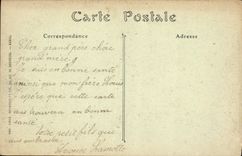 Carte Postale
Correspondance
Adresse
Cher grand père chere
grand mère
Je suis en bonne santé
ainsi que mon frère
J'espère que cette carte
vous trouvera en bonne
santé
Votre petit fils qui
vous embrasse